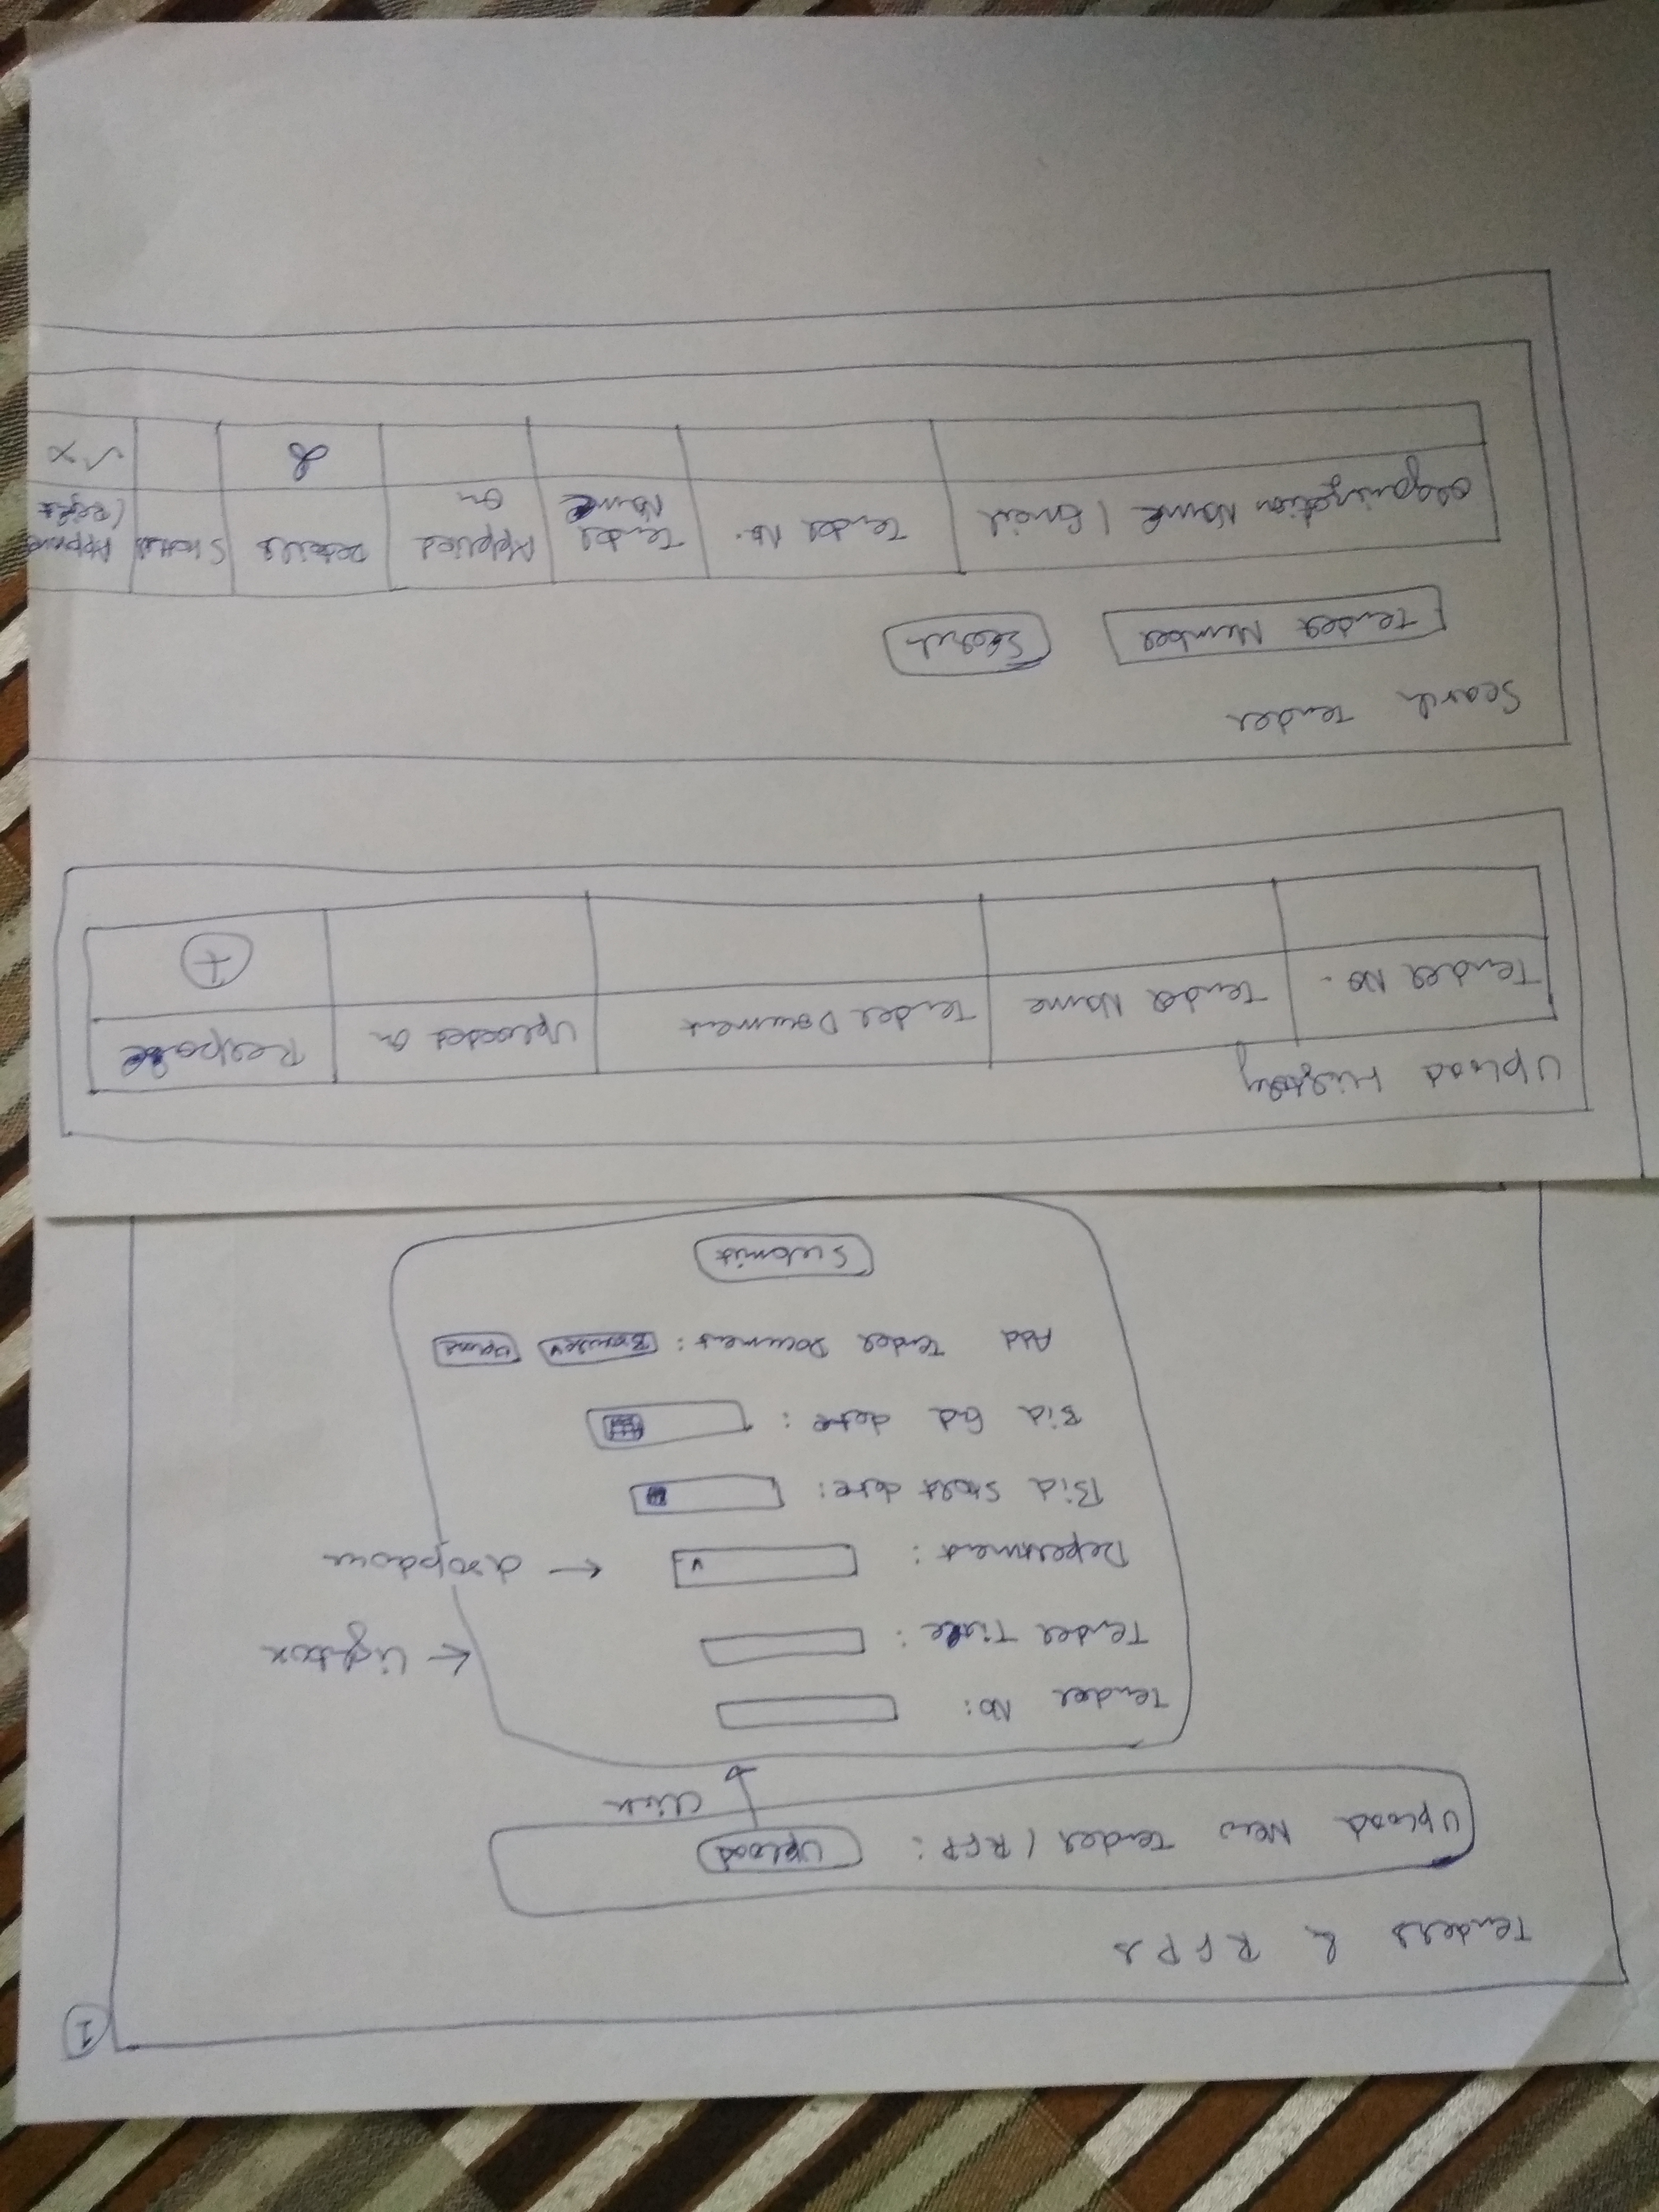 1
Tenders & RFPs
Upload New Tender / RFP: Upload
Click
Tender No:
Tender Title:
← Lightbox
Department: v
← dropdown
Bid Start date:
Bid End date:
Add Tender Document: Browse v Upload
Submit
Upload History
Tender No. Tender Name Tender Document Uploaded on Response
+
Search Tender
Tender Number Search
Organization Name / Email Tender No. Tender Name Applied on Details Status
✓ ×